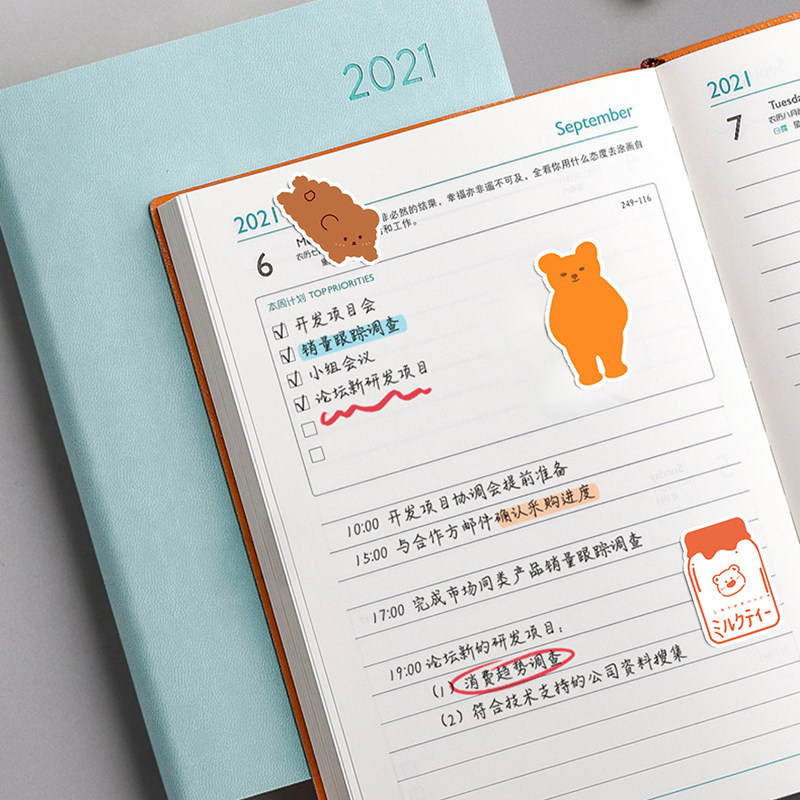 2021
2021
September
非必然的结果，幸福亦非遥不可及，全看你用什么态度去涂画自
和工作。
6
农历七
249-116
本周计划 TOP PRIORITIES
开发项目会
销量跟踪调查
小组会议
论坛新研发项目
10:00 开发项目协调会提前准备
15:00 与合作方邮件确认采购进度
17:00 完成市场同类产品销量跟踪调查
19:00 论坛新的研发项目：
(1) 消费趋势调查
(2) 符合技术支持的公司资料搜集
ミルクティー
2021
7
Tuesda
农历八月
白露 星